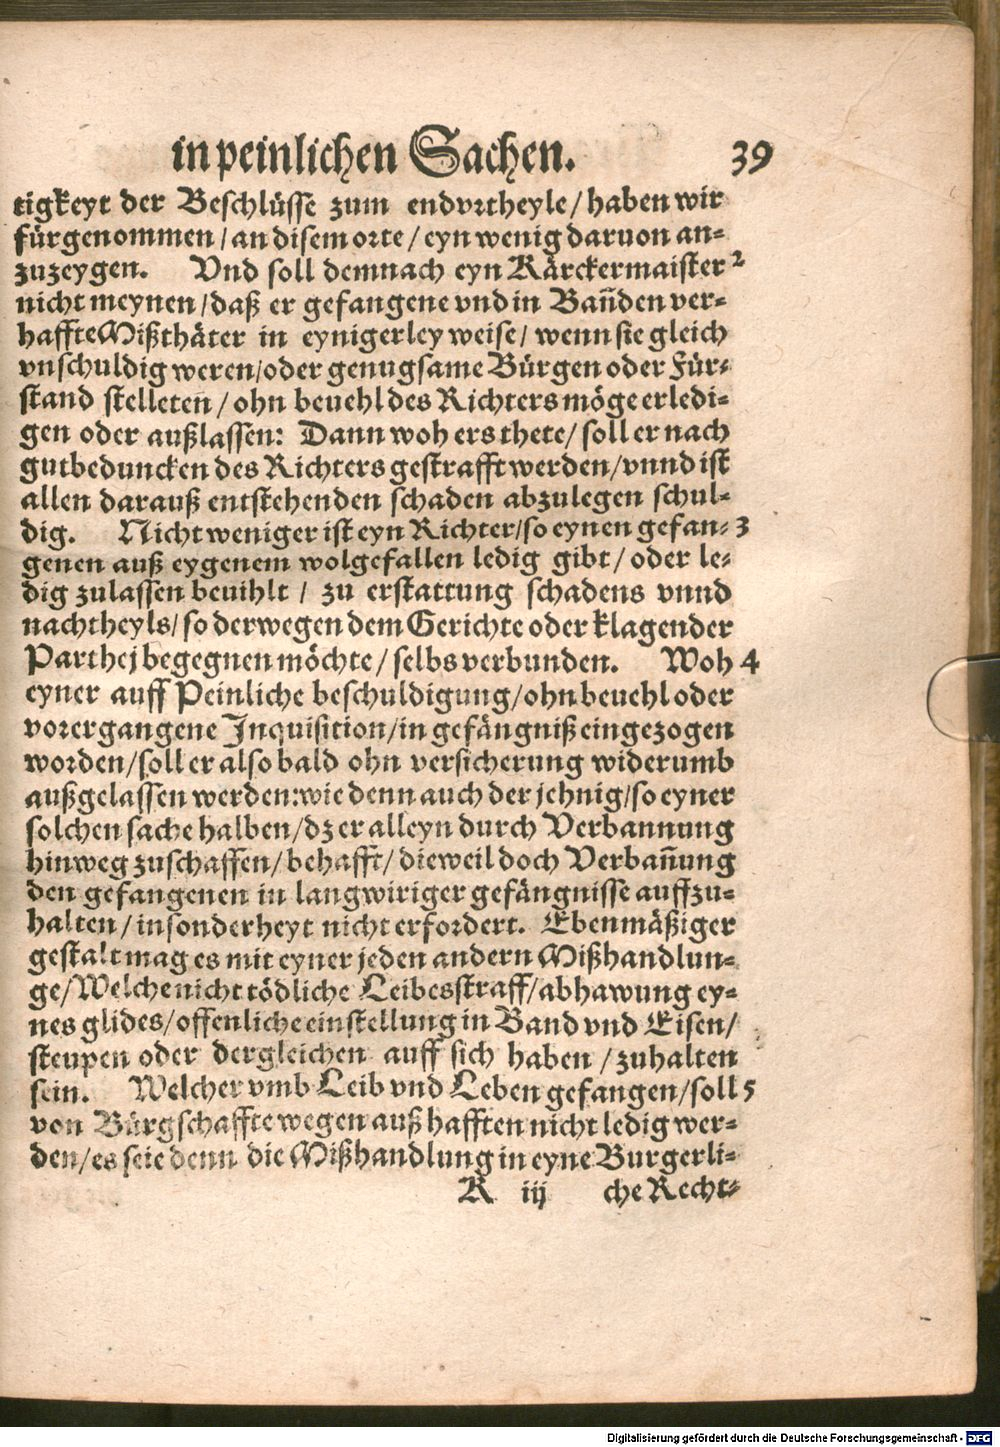 in peinlichen Sachen. 39
tigkeyt der Beschlüsse zum endvrtheyle / haben wir
fürgenommen / an disem orte / eyn wenig daruon an-
zuzeygen. Vnd soll demnach eyn Kärckermaister 2
nicht meynen / daß er gefangene vnd in Bañden ver-
haffte Mißthäter in eynigerley weise / wenn sie gleich
vnschuldig weren / oder genugsame Bürgen oder Für-
stand stelleten / ohn beuehl des Richters möge erledi-
gen oder außlassen: Dann woh ers thete / soll er nach
gutbeduncken des Richters gestrafft werden / vnnd ist
allen darauß entstehenden schaden abzulegen schul-
dig. Nicht weniger ist eyn Richter / so eynen gefan- 3
genen auß eygenem wolgefallen ledig gibt / oder le-
dig zulassen beuihlt / zu erstattung schadens vnnd
nachtheyls / so derwegen dem Gerichte oder klagender
Parthej begegnen möchte / selbs verbunden. Woh 4
eyner auff Peinliche beschuldigung / ohn beuehl oder
vorergangene Inquisition / in gefängniß eingezogen
worden / soll er also bald ohn versicherung widerumb
außgelassen werden: wie denn auch der jehnig / so eyner
solchen sache halben / dz er alleyn durch Verbannung
hinweg zuschaffen / behafft / dieweil doch Verbañung
den gefangenen in langwiriger gefängnisse auffzu-
halten / insonderheyt nicht erfordert. Ebenmäßiger
gestalt mag es mit eyner jeden andern Mißhandlun-
ge / Welche nicht tödliche Leibesstraff / abhawung ey-
nes glides / offenliche einstellung in Band vnd Eisen /
steupen oder dergleichen auff sich haben / zuhalten
sein. Welcher vmb Leib vnd Leben gefangen / soll 5
von Bürgschaffte wegen auß hafften nicht ledig wer-
den / es seie denn die Mißhandlung in eyne Burgerli-
K iij che Recht-
Digitalisierung gefördert durch die Deutsche Forschungsgemeinschaft - DFG